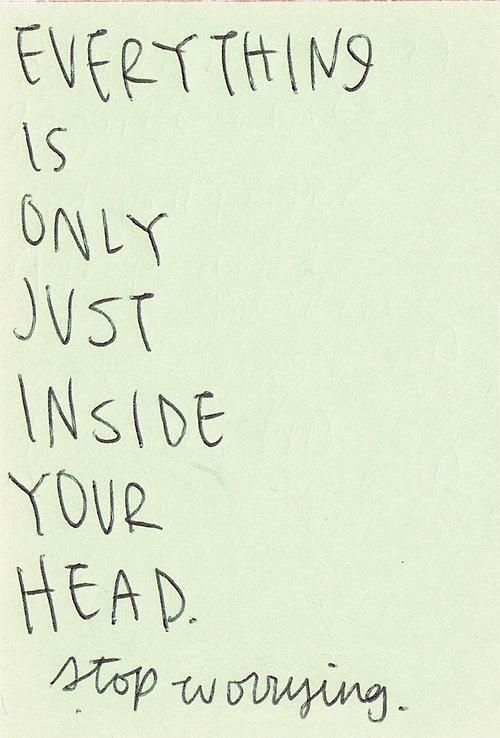 EVERYTHING
IS
ONLY
JUST
INSIDE
YOUR
HEAD.
stop worrying.